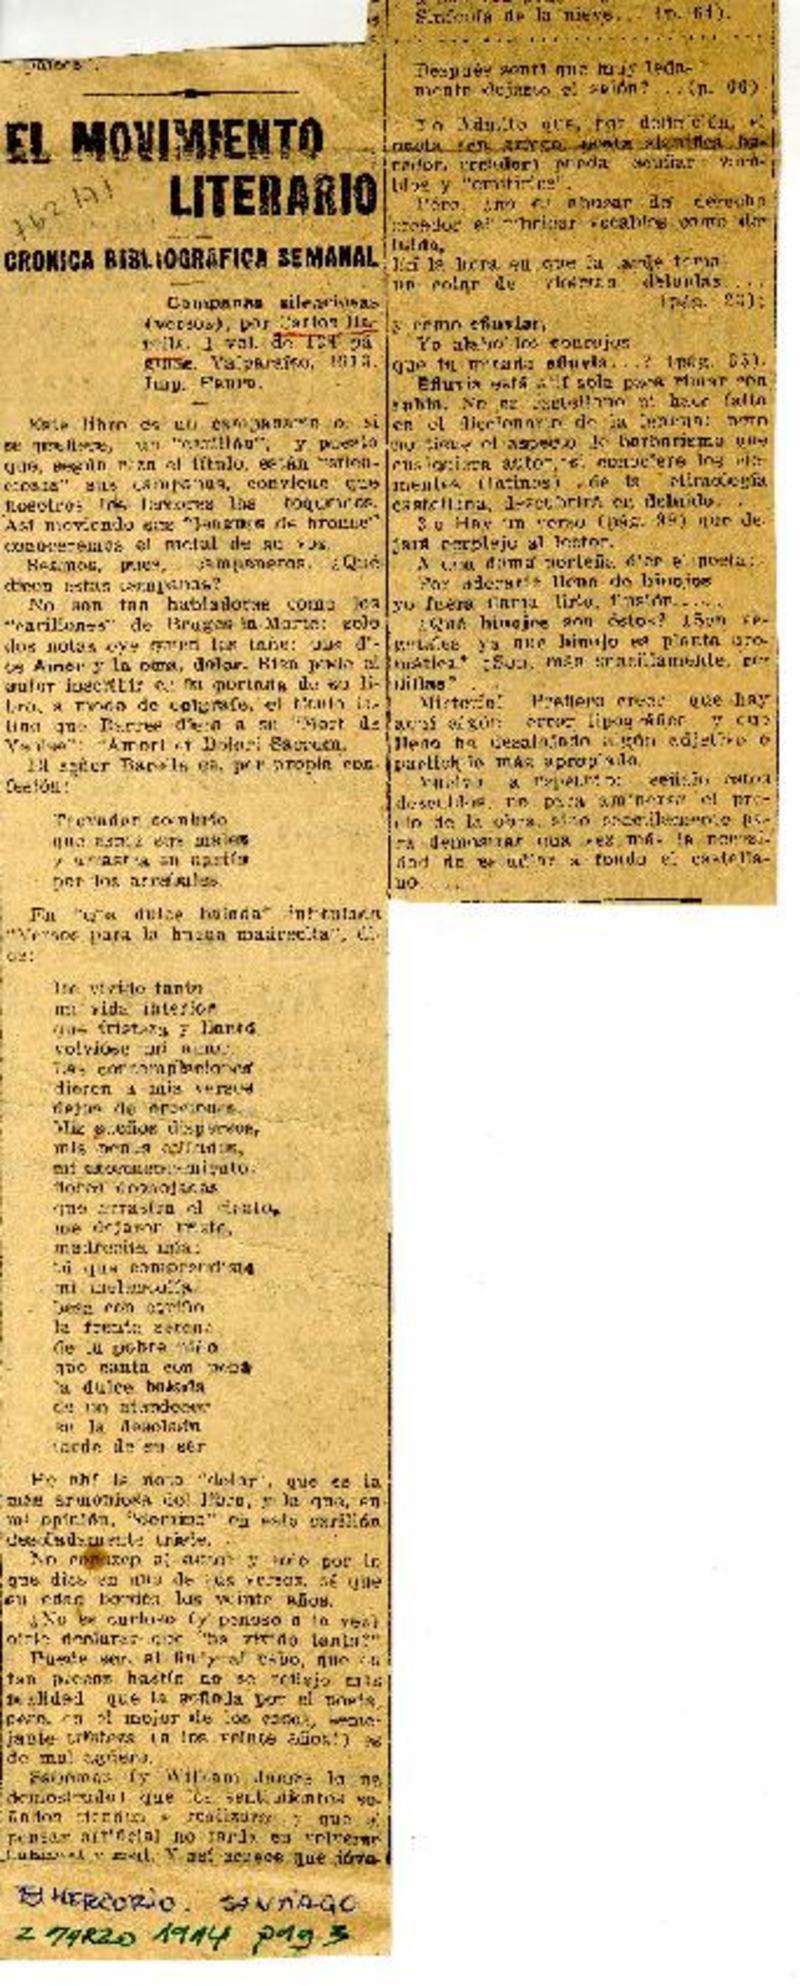 EL MOVIMIENTO
LITERARIO
762191
CRONICA BIBLIOGRAFICA SEMANAL
Campanas silenciosas
(versos), por Carlos Ba-
rella. 1 vol. de 124 pá
ginas. Valparaíso, 1913.
Imp.
Este libro es un campanario o, si
se prefiere, un "carillón", y puesto
que, según reza el título, están "silen-
ciosas" sus campanas, conviene que
nosotros los lectores las toquemos.
Así moviendo sus "lenguas de bronce"
conoceremos el metal de su voz.
Seamos, pues, campaneros. ¿Qué
dicen estas campanas?
No son tan habladoras como los
"carillones" de Bruges-la-Morte: solo
dos notas oye quien las tañe: una di-
ce Amor y la otra, dolor. Bien pudo el
autor inscribir en la portada de su li-
bro, a modo de epígrafe, el título la-
tino que Barres diera a su "Mort de
Venise": "Amori et Dolori Sacrum.
El señor Barella es, por propia con-
fesión:
Trovador sombrío
que canta sus males
y arrastra su hastío
por los arrabales.
En "una dulce balada" intitulada
"Versos para la buena madrecita", di-
ce:
He vivido tanto
mi vida interior
que tristeza y llanto
volvióse mi amor.
Las contemplaciones
dieron a mis versos
dejos de oraciones.
Mis sueños dispersos,
mis penas calladas,
mi
flores deshojadas
que arrastra el viento,
me dejaron triste,
madrecita mía;
tú que comprendiste
mi melancolía
besa con cariño
la frente serena
de tu pobre niño
que canta con pena
la dulce balada
de un atardecer
en la desolada
tarde de su ser
He ahí la nota "dolor", que es la
más armoniosa del libro, y la que, en
mi opinión, "domina" en este carillón
desoladamente triste.
No conozco al autor y solo por lo
que dice en uno de sus versos, sé que
su edad bordea los veinte años.
¿No es curioso (y penoso a la vez)
oirle declarar que "ha vivido tanto?"
Puede ser, al fin y al cabo, que en
tan precoz hastío no se refleje más
realidad que la soñada por el poeta,
pero, en el mejor de los casos, seme-
jante tristeza (a los veinte años!) es
de mal agüero.
Sabemos (y William James lo ha
demostrado) que los sentimientos so-
ñados tienden a realizarse y que el
pensar artificial no tarda en volverse
natural y real. Y así acaece que jóve-
El MERCURIO. SANTIAGO
2 MARZO 1914 pag 3
Sinfonía de la nieve... (p. 61).
Después sentí que muy leda-
mente dejaste el salón? ...(p. 66)
Yo Admito que, por definición, el
poeta (en griego, poeta significa ha-
cedor, creador) pueda acuñar vocá-
blos y "emitirlos".
Pero, ¿no es abusar del derecho
creador el fabricar vocablos como
En la hora en que la tarde toma
un color de violetas ...
(pág. 23);
y como efluviar,
Yo alabo los
que tu mirada efluvia...? (pág. 35).
Efluvia está allí solo para rimar con
rubia. No es castellano ni hace falta
en el diccionario de la lengua; pero
no tiene el aspecto de barbarismo que
cualquiera autor, si conociere los ele-
mentos (latinos) de la etimología
castellana, descubrirá en
3.o Hay un verso (pág. 98) que de-
jará perplejo al lector.
A una dama porteña dice el poeta:
Por adorarte lleno de hinojos
yo fuera llama, lirio, ilusión.....
¿Qué hinojos son éstos? ¿Son ve-
getales ya que hinojo es planta aro-
mática? ¿Son, más sencillamente, ro-
dillas?
Misterio! Prefiero creer que hay
aquí algún error tipográfico y que
lleno ha desalojado algún adjetivo o
participio más apropiado.
Vuelvo a repetirlo: señalo estos
descuidos, no para aminorar el pre-
cio de la obra, sino sencillamente pa-
ra demostrar una vez más la necesi-
dad de estudiar a fondo el castella-
no....